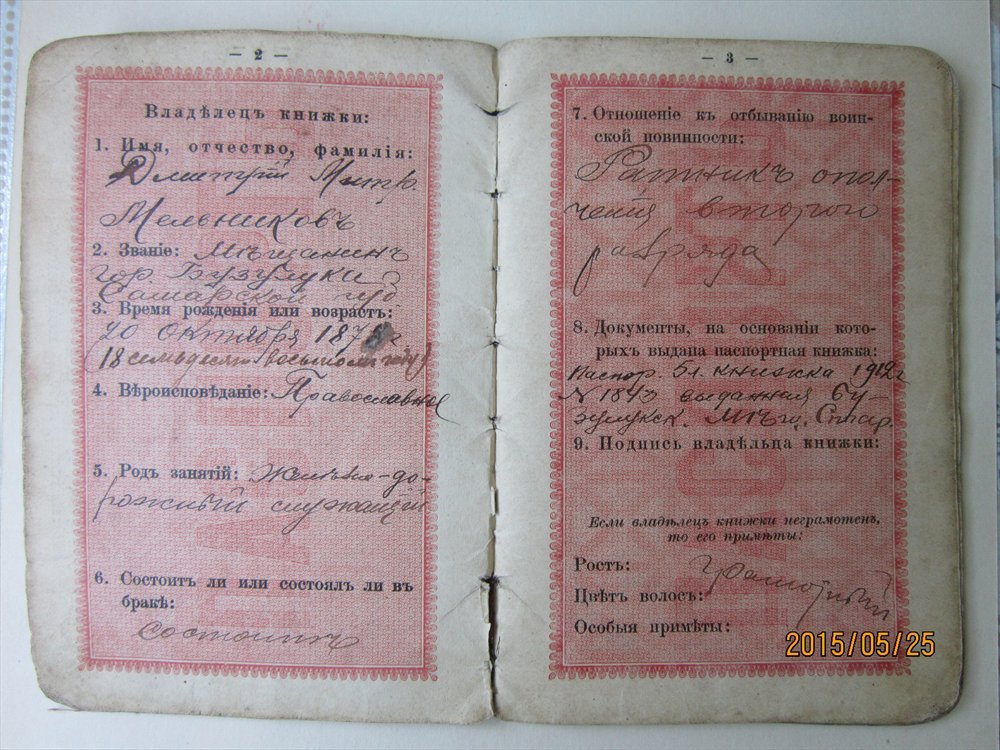 — 2 —
Владѣлецъ книжки:
1. Имя, отчество, фамилія:
Дмитрій Митр.
Мельниковъ
2. Званіе: Мѣщанинъ
гор. Бузулука
Самарской губ
3. Время рожденія или возрастъ:
20 Октября 1878 г
(18 семьдесят восьмого году)
4. Вѣроисповѣданіе: Православное
5. Родъ занятій: Желѣзно-до-
рожный служащій
6. Состоитъ ли или состоялъ ли въ
бракѣ:
состоитъ
— 3 —
7. Отношеніе къ отбыванію воин-
ской повинности:
Ратникъ опол-
ченія второго
разряда
8. Документы, на основаніи кото-
рыхъ выдана паспортная книжка:
Паспор. Бл. книжка 1912 г
№ 1843 выданная Бу-
зулукск. Мѣщ. Стар.
9. Подпись владѣльца книжки:
Если владѣлецъ книжки неграмотенъ,
то его примѣты:
Ростъ:
Цвѣтъ волосъ:
грамотный
Особыя примѣты:
2015/05/25